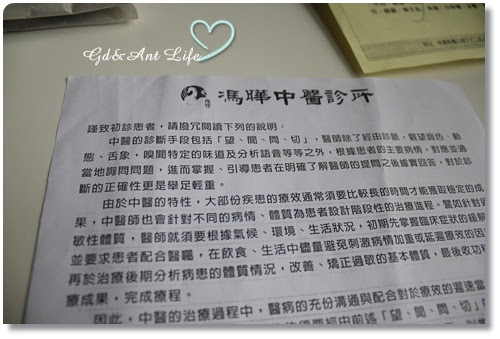 Gd&Ant Life
馮曄中醫診所
謹致初診患者，請撥冗閱讀下列的說明：
中醫的診斷手段包括「望、聞、問、切」，醫師除了經由診脈，觀望面色、動
態、舌象，嗅聞特定的味道及分析語音等等之外，根據患者的主要病情，對應並適
當地詢問問題，進而掌握、引導患者在明確了解醫師的提問之後據實回答，對於診
斷的正確性更是舉足輕重。
由於中醫的特性，大部份疾患的療效通常須要比較長的時間才能獲取穩定的成
果，中醫師也會針對不同的病情、體質為患者設計階段性的治療進程。譬如針對過
敏性體質，醫師就須要根據氣候、環境、生活狀況，初期先掌握臨床症狀的緩解
並要求患者配合醫囑，在飲食、生活中儘量避免刺激病情加重或延遲療效的因
再於治療後期分析病患的體質情況，改善、矯正過敏的本體質，最後收功
療成果，完成療程。
因此，中醫的治療過程中，醫病的充份溝通與配合對於療效的遲速當
須要經由前述「望、聞、問、切」